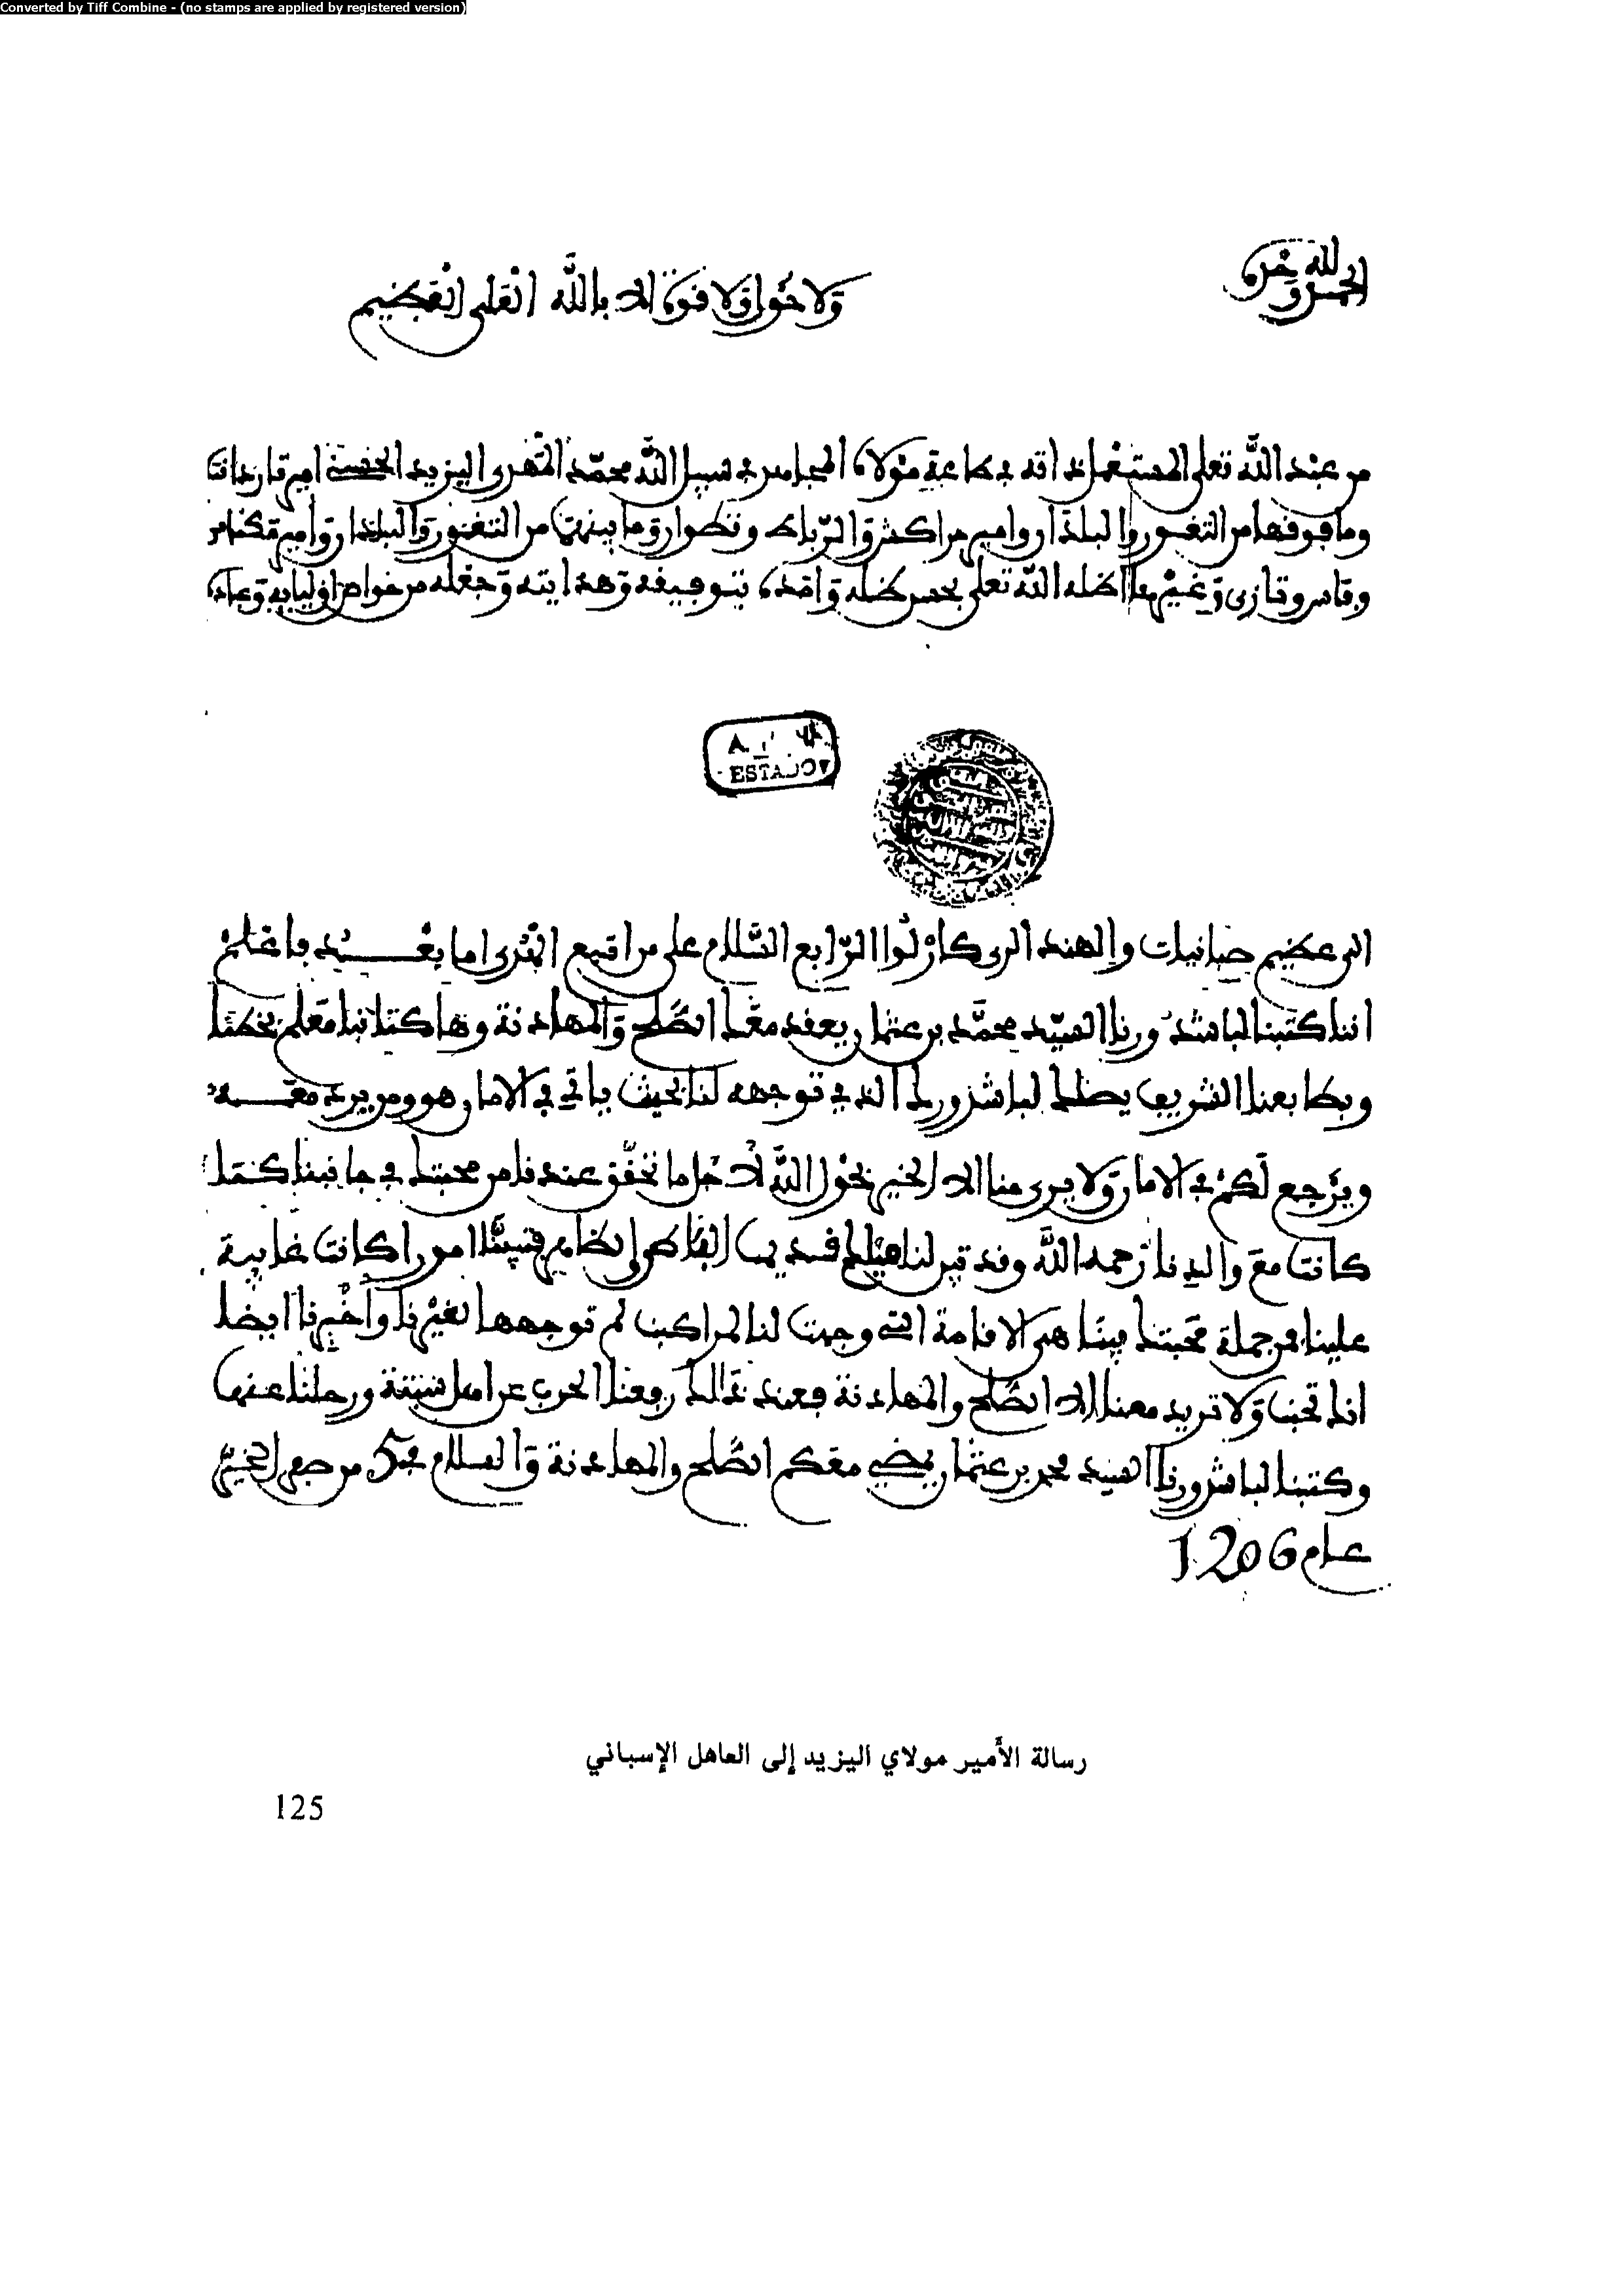 Converted by Tiff Combine - (no stamps are applied by registered version)
الحمد لله وحده
ولا حول ولا قوة الا بالله العلي العظيم
من عبد الله تعلى المستغرق في طاعة مولاه المجاهد في سبيل الله محمد المهدي اليزيد الحسني امير تارودانت
وما فوقها من الثغور والبلدان وامير مراكش والرباط وتطوان وما بينهن من الثغور والبلدان وامير مكناس
وفاس وتازى وغيرها اظله الله تعلى بحسن ظله وامده بتوفيقه وهدايته وجعله من خواص اوليايه
ESTADO
الى عظيم صبانيات والهند الري كارلوا الرابع السلام على من اتبع الهدى اما بعد فاعلم
اننا كتبنا لباشدورنا السيد محمد بن عثمان يعقد معك الصلح والمهادنة وها كتابنا معلم بخطنا
وبطابعنا الشريف يصلك لباشدورك الذي توجهه لنا بحيث ياتي في الامان هو ومن يرد معه
ويرجع لكم في الامان ولا يرى منا الا الخير بحول الله لاجل ما تحقق عندنا من محبتك في جانبنا كما
كانت مع والدنا رحمه الله وقد تبين لنا
علينا من جملة محبتك فينا هي الاقامة التي وجهت لنا المراكب لم توجهها لغيرنا واخبرنا ايضا
انك تحبنا ولا تريد معنا الا الصلح والمهادنة فعند ذالك رفعنا الحرب عن اهل سبتة ورحلنا عنها
وكتبنا لباشدورنا السيد محمد بن عثمان يمضي معكم الصلح والمهادنة والسلام في 5 من
عام 1206
رسالة الأمير مولاي اليزيد إلى العاهل الإسباني
125